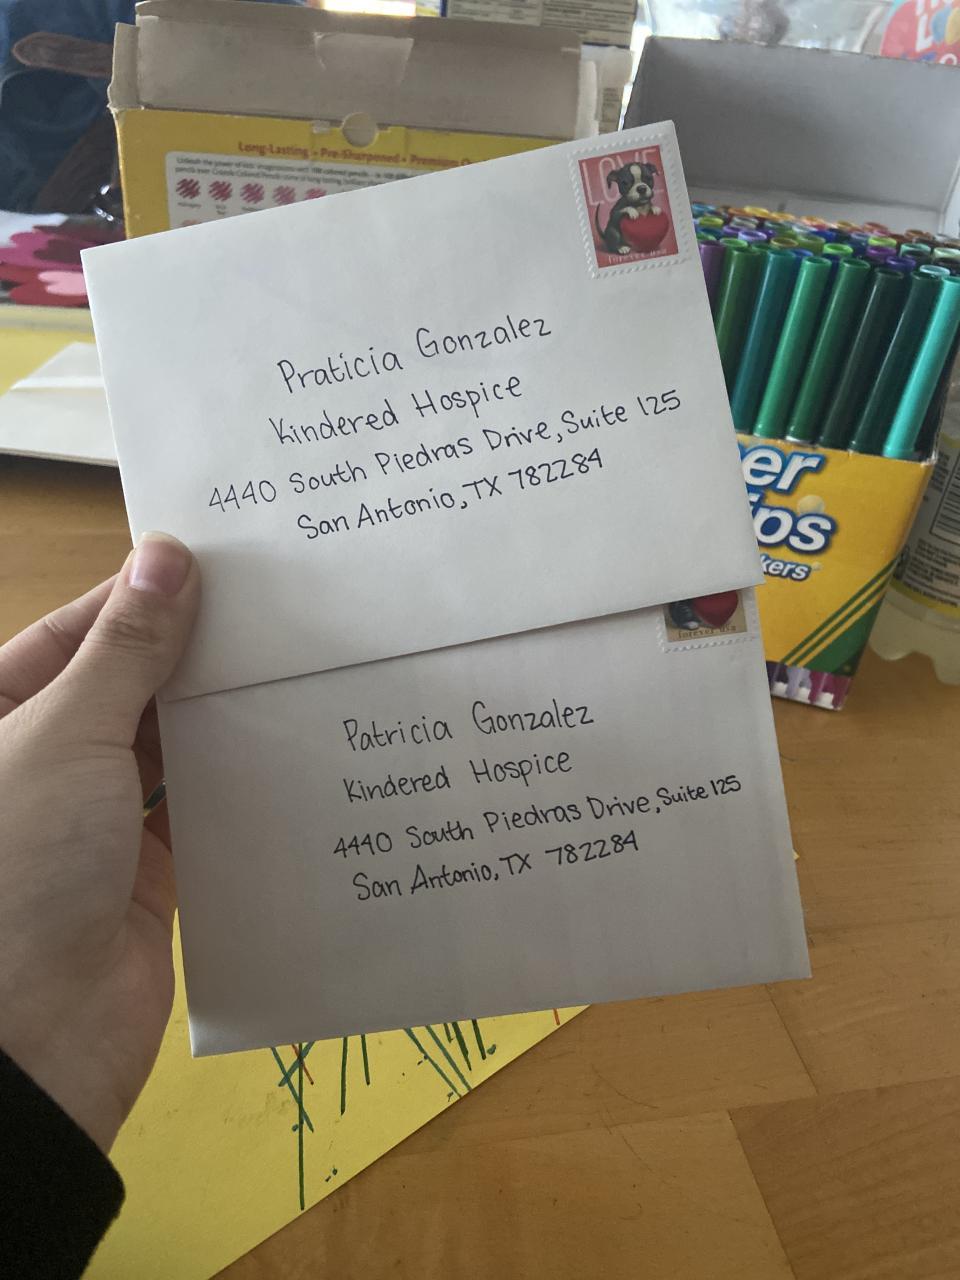 Long-Lasting • Pre-Sharpened • Premium
LOVE
forever usa
Praticia Gonzalez
Kindered Hospice
4440 South Piedras Drive, Suite 125
San Antonio, TX 782284
er
ips
kers
forever usa
Patricia Gonzalez
Kindered Hospice
4440 South Piedras Drive, Suite 125
San Antonio, TX 782284